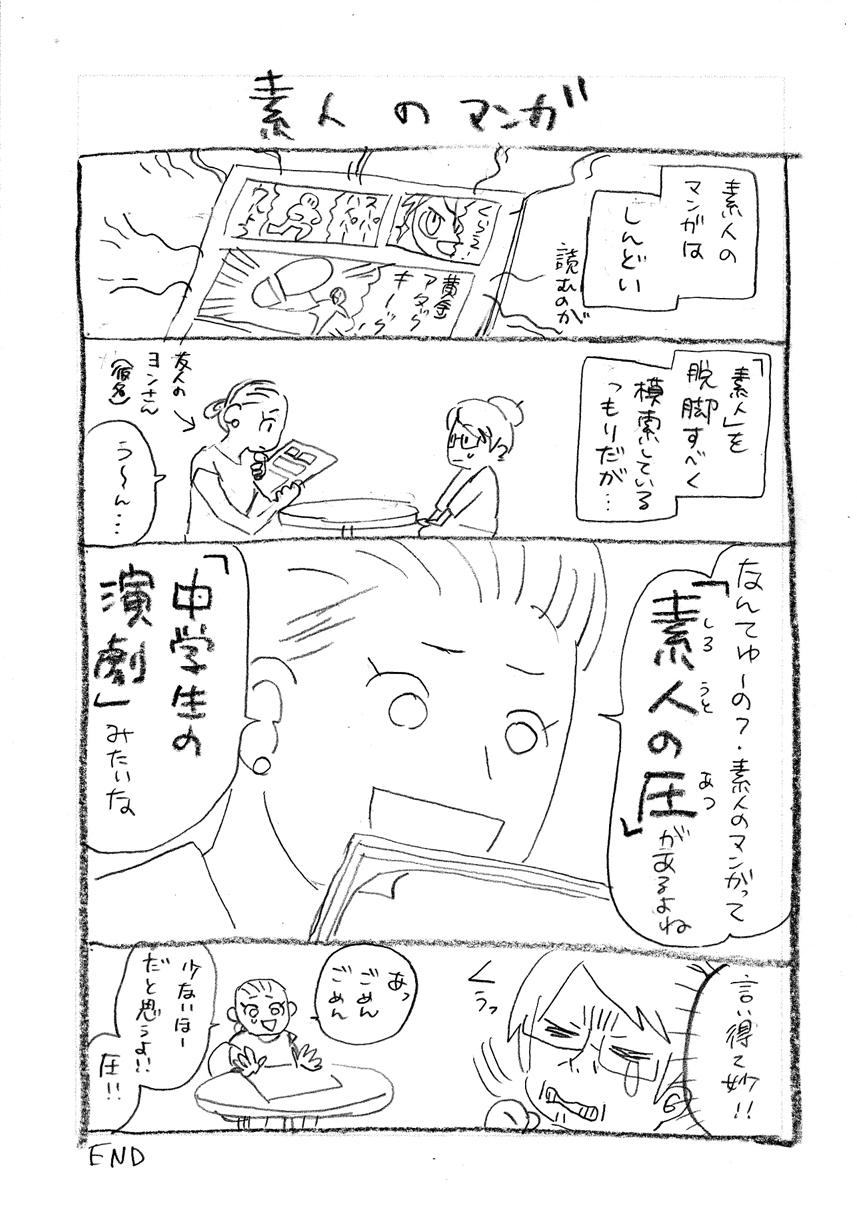 素人のマンガ
素人の
マンガは
しんどい
読むのが
くらえ!
黄金
アタック
キーック
「素人」を
脱脚すべく
模索している
つもりだが…
友人の
ヨンさん
(仮名)
う〜ん…
なんてゆーの?・素人のマンガって
「素人の圧」があるよね
しろ
うと
あつ
「中学生の
演劇」みたいな
言い得て妙!!
くぅっ
あっ
ごめん
ごめん
少ないほー
だと思うよ!!
圧!!
END